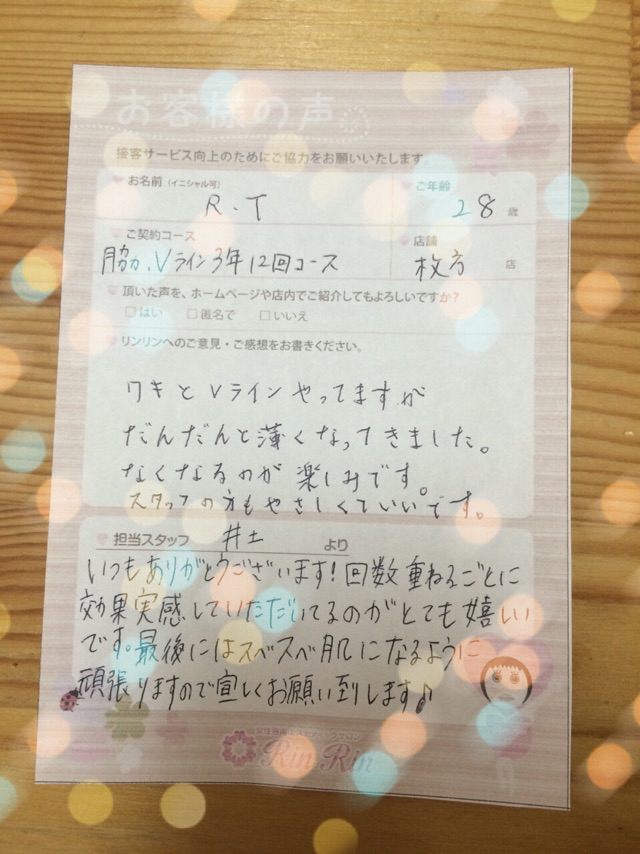 お客様の声
接客サービス向上のためにご協力をお願いいたします。
お名前（イニシャル可） ご年齢
R.T 28 歳
ご契約コース 店舗
脇、Vライン3年12回コース 枚方 店
頂いた声を、ホームページや店内でご紹介してもよろしいですか？
□はい □匿名で □いいえ
リンリンへのご意見・ご感想をお書きください。
ワキとVラインやってますが
だんだんと薄くなってきました。
なくなるのが楽しみです。
スタッフの方もやさしくていいです。
担当スタッフ 井土 より
いつもありがとうございます!回数重ねるごとに
効果実感していただいてるのがとても嬉しい
です。最後にはスベスベ肌になるように
頑張りますので宜しくお願い致します♪
Rin Rin